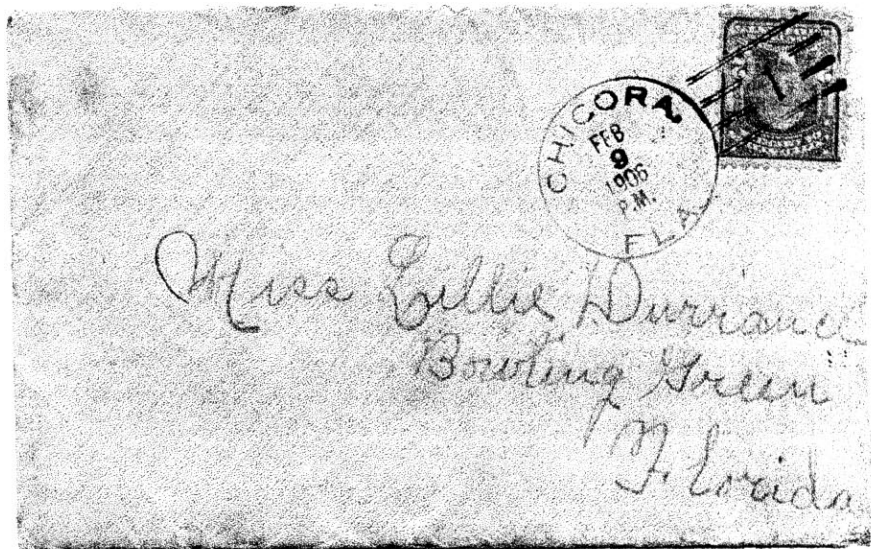 CHICORA,
FEB
9
1906
P.M.
FLA
Miss Lillie Durrance
Bowling Green
Florida